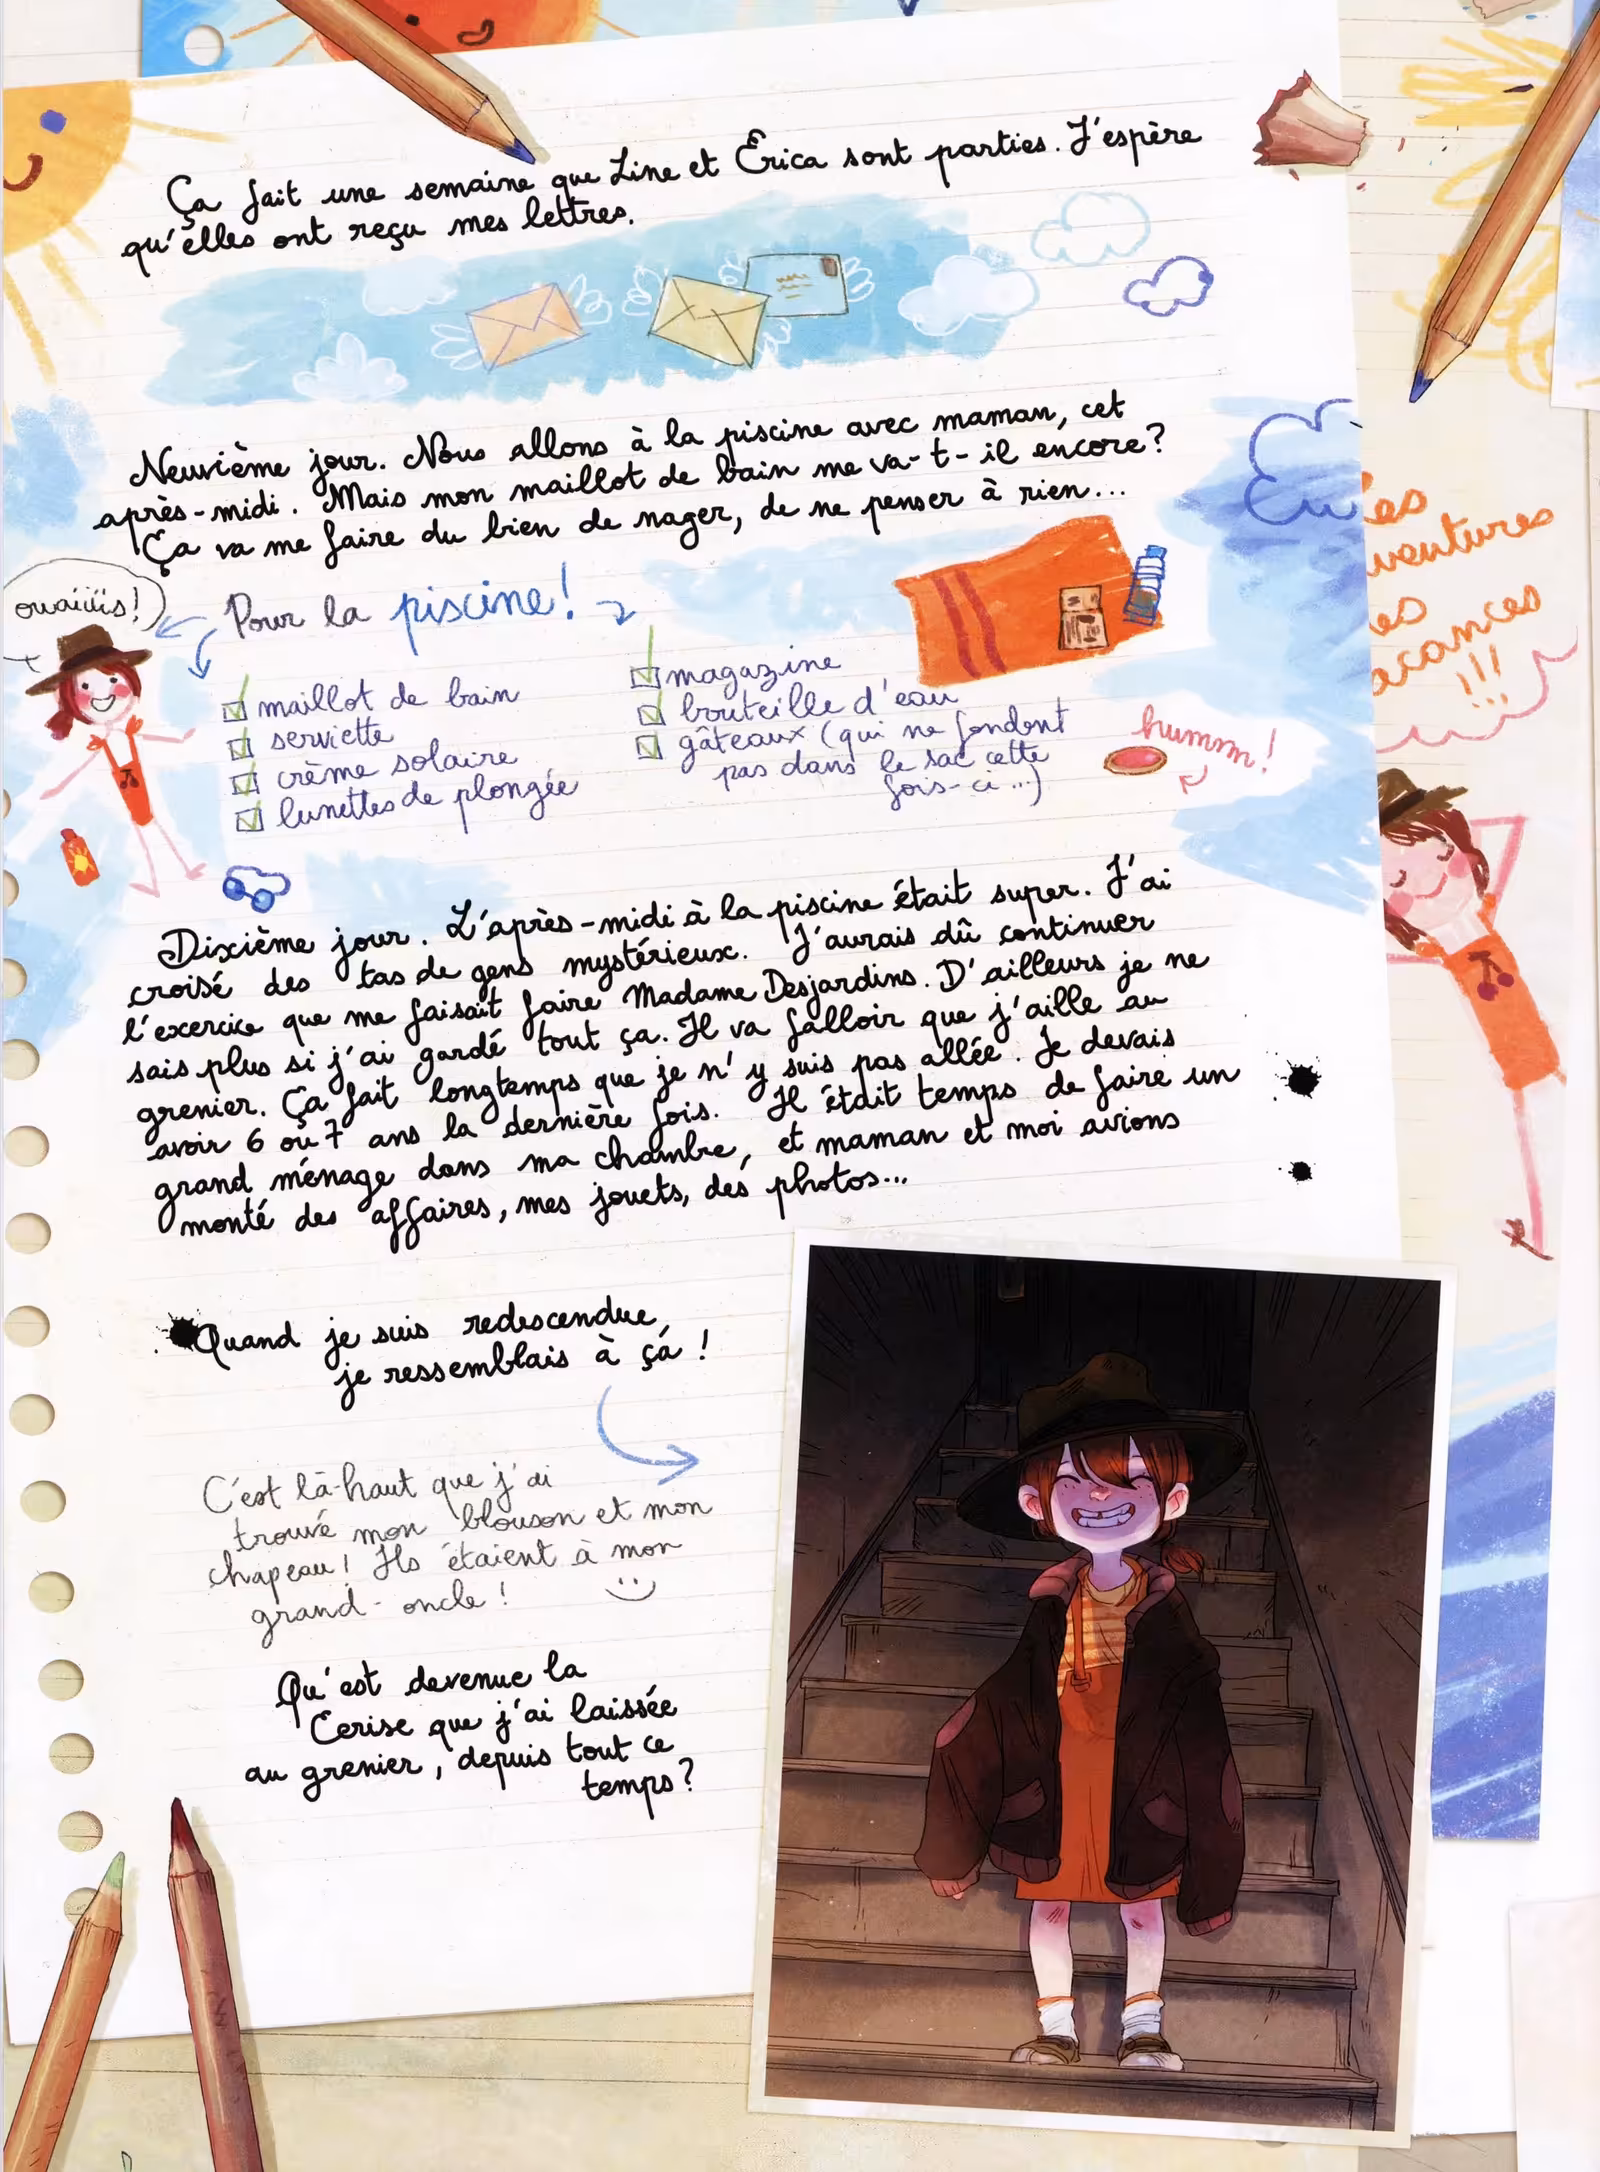 Ça fait une semaine que Line et Erica sont parties. J'espère
qu'elles ont reçu mes lettres.
Neuvième jour. Nous allons à la piscine avec maman, cet
après-midi. Mais mon maillot de bain me va-t-il encore?
Ça va me faire du bien de nager, de ne penser à rien...
ouaiiiis!
Pour la piscine!
maillot de bain
serviette
crème solaire
lunettes de plongée
magazine
bouteille d'eau
gâteaux (qui ne fondent
pas dans le sac cette
fois-ci...)
hummm!
Dixième jour. L'après-midi à la piscine était super. J'ai
croisé des tas de gens mystérieux. J'aurais dû continuer
l'exercice que me faisait faire Madame Desjardins. D'ailleurs je ne
sais plus si j'ai gardé tout ça. Il va falloir que j'aille au
grenier. Ça fait longtemps que je n'y suis pas allée. Je devais
avoir 6 ou 7 ans la dernière fois. Il était temps de faire un
grand ménage dans ma chambre, et maman et moi avions
monté des affaires, mes jouets, des photos...
Quand je suis redescendue,
je ressemblais à ça!
C'est là-haut que j'ai
trouvé mon blouson et mon
chapeau! Ils étaient à mon
grand-oncle!
Qu'est devenue la
Cerise que j'ai laissée
au grenier, depuis tout ce
temps?
es
ventures
es
acances
!!!